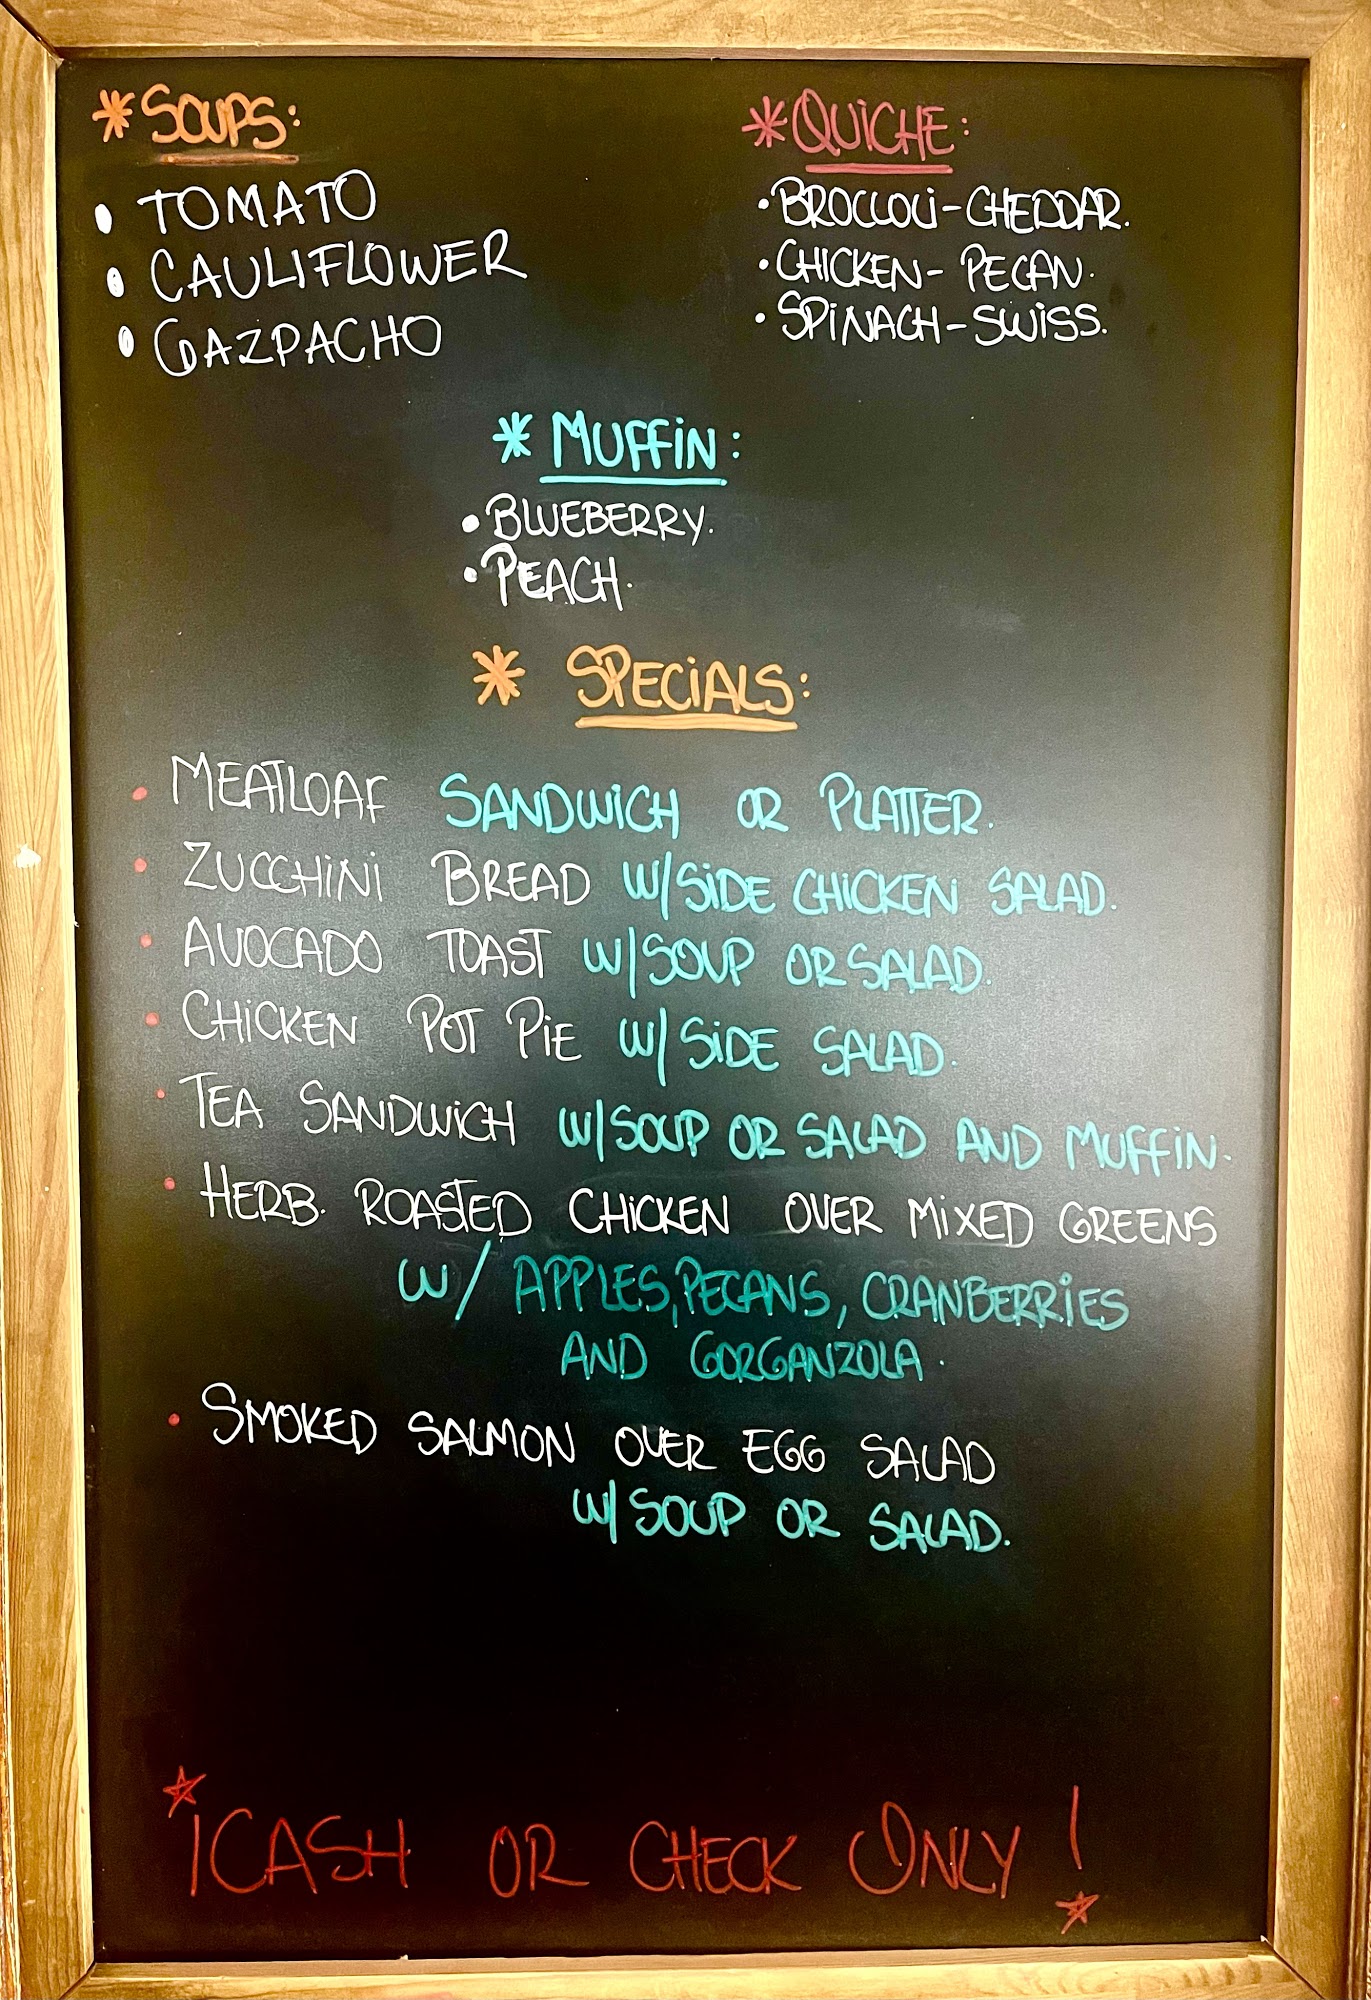 *SOUPS:
• TOMATO
• CAULIFLOWER
• GAZPACHO
*QUICHE:
• BROCCOLI-CHEDDAR.
• CHICKEN-PECAN.
• SPINACH-SWISS.
* MUFFIN:
• BLUEBERRY.
• PEACH.
* SPECIALS:
• MEATLOAF SANDWICH OR PLATTER.
• ZUCCHINI BREAD W/SIDE CHICKEN SALAD.
• AVOCADO TOAST W/SOUP OR SALAD.
• CHICKEN POT PIE W/SIDE SALAD.
• TEA SANDWICH W/SOUP OR SALAD AND MUFFIN.
• HERB. ROASTED CHICKEN OVER MIXED GREENS
W/ APPLES, PECANS, CRANBERRIES
AND GORGANZOLA.
• SMOKED SALMON OVER EGG SALAD
W/SOUP OR SALAD.
¡CASH OR CHECK ONLY!